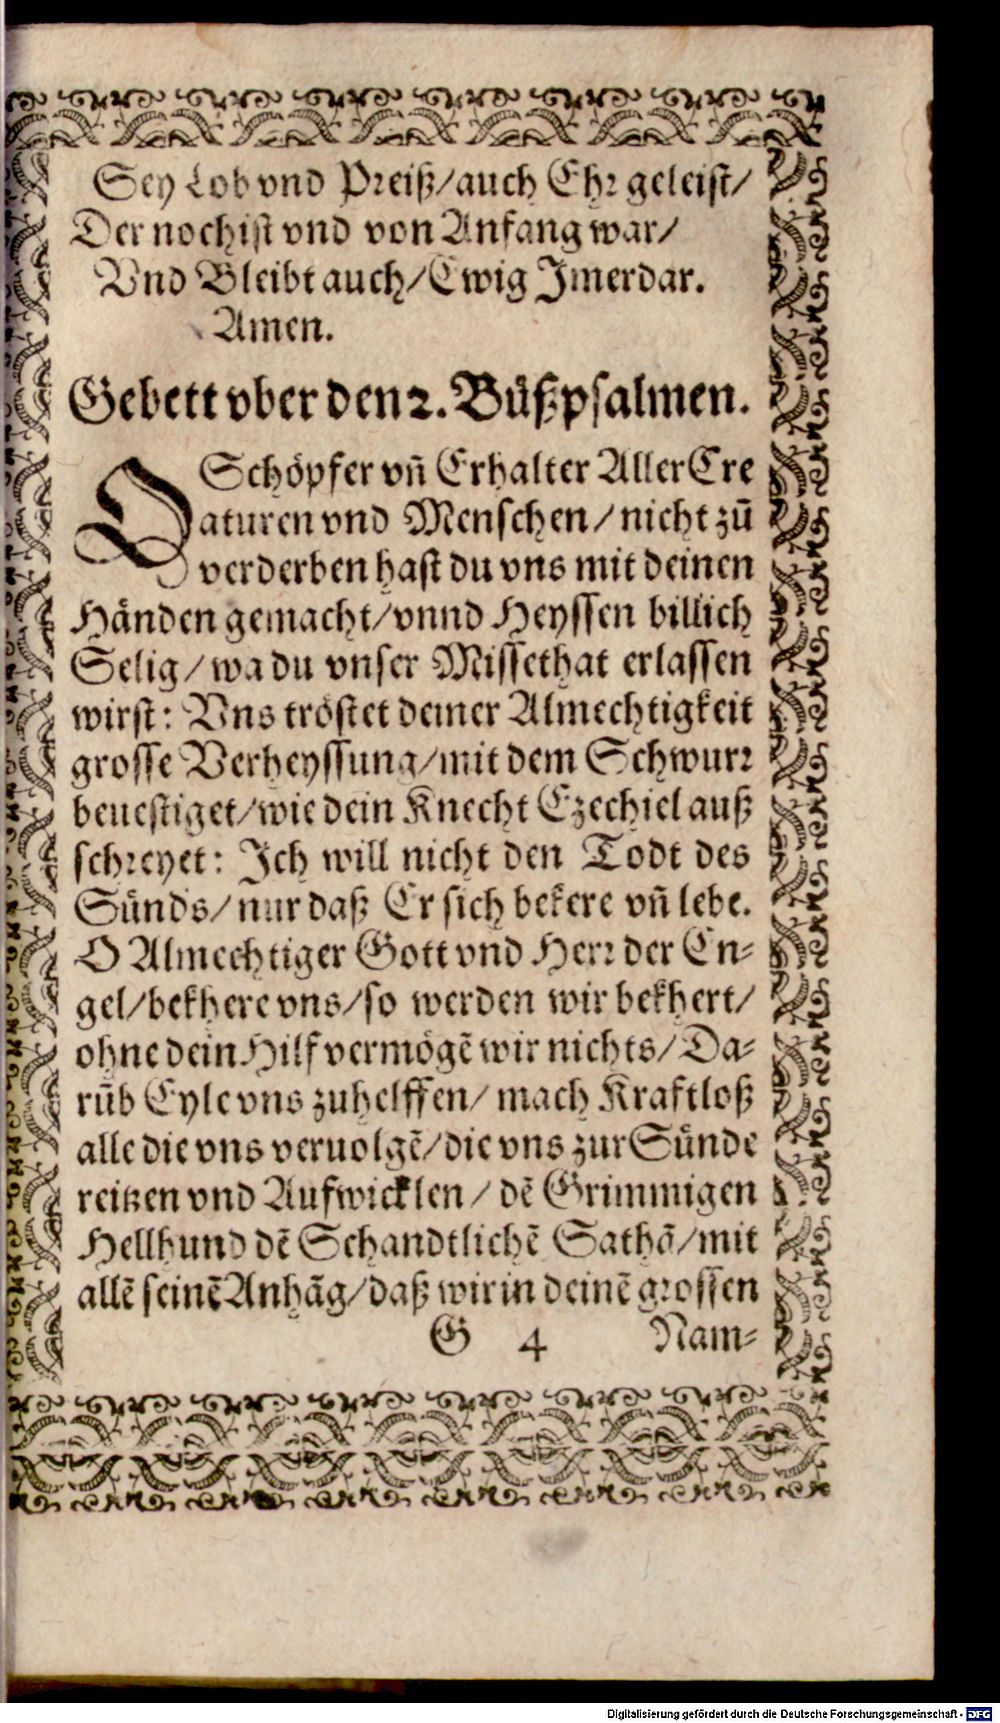 Sey Lob vnd Preiß/auch Ehr geleist/
Der noch ist vnd von Anfang war/
Vnd Bleibt auch/Ewig Jmerdar.
Amen.
Gebett vber den 2. Büßpsalmen.
O Schöpfer vn̄ Erhalter Aller Cre
aturen vnd Menschen/nicht zū
verderben hast du vns mit deinen
Händen gemacht/vnnd Heyssen billich
Selig/wa du vnser Missethat erlassen
wirst: Vns tröstet deiner Almechtigkeit
grosse Verheyssung/mit dem Schwurr
beuestiget/wie dein Knecht Ezechiel auß
schreyet: Jch will nicht den Todt des
Sünds/nur daß Er sich bekere vn̄ lebe.
O Almechtiger Gott vnd Herr der En-
gel/bekhere vns/so werden wir bekhert/
ohne dein Hilf vermögē wir nichts/Da-
rūb Eyle vns zuhelffen/mach Kraftloß
alle die vns veruolgē/die vns zur Sünde
reitzen vnd Aufwicklen/dē Grimmigen
Hellhund dē Schandtlichē Sathā/mit
allē seinē Anhāg/daß wir in deinē grossen
G 4 Nam-
Digitalisierung gefördert durch die Deutsche Forschungsgemeinschaft - DFG